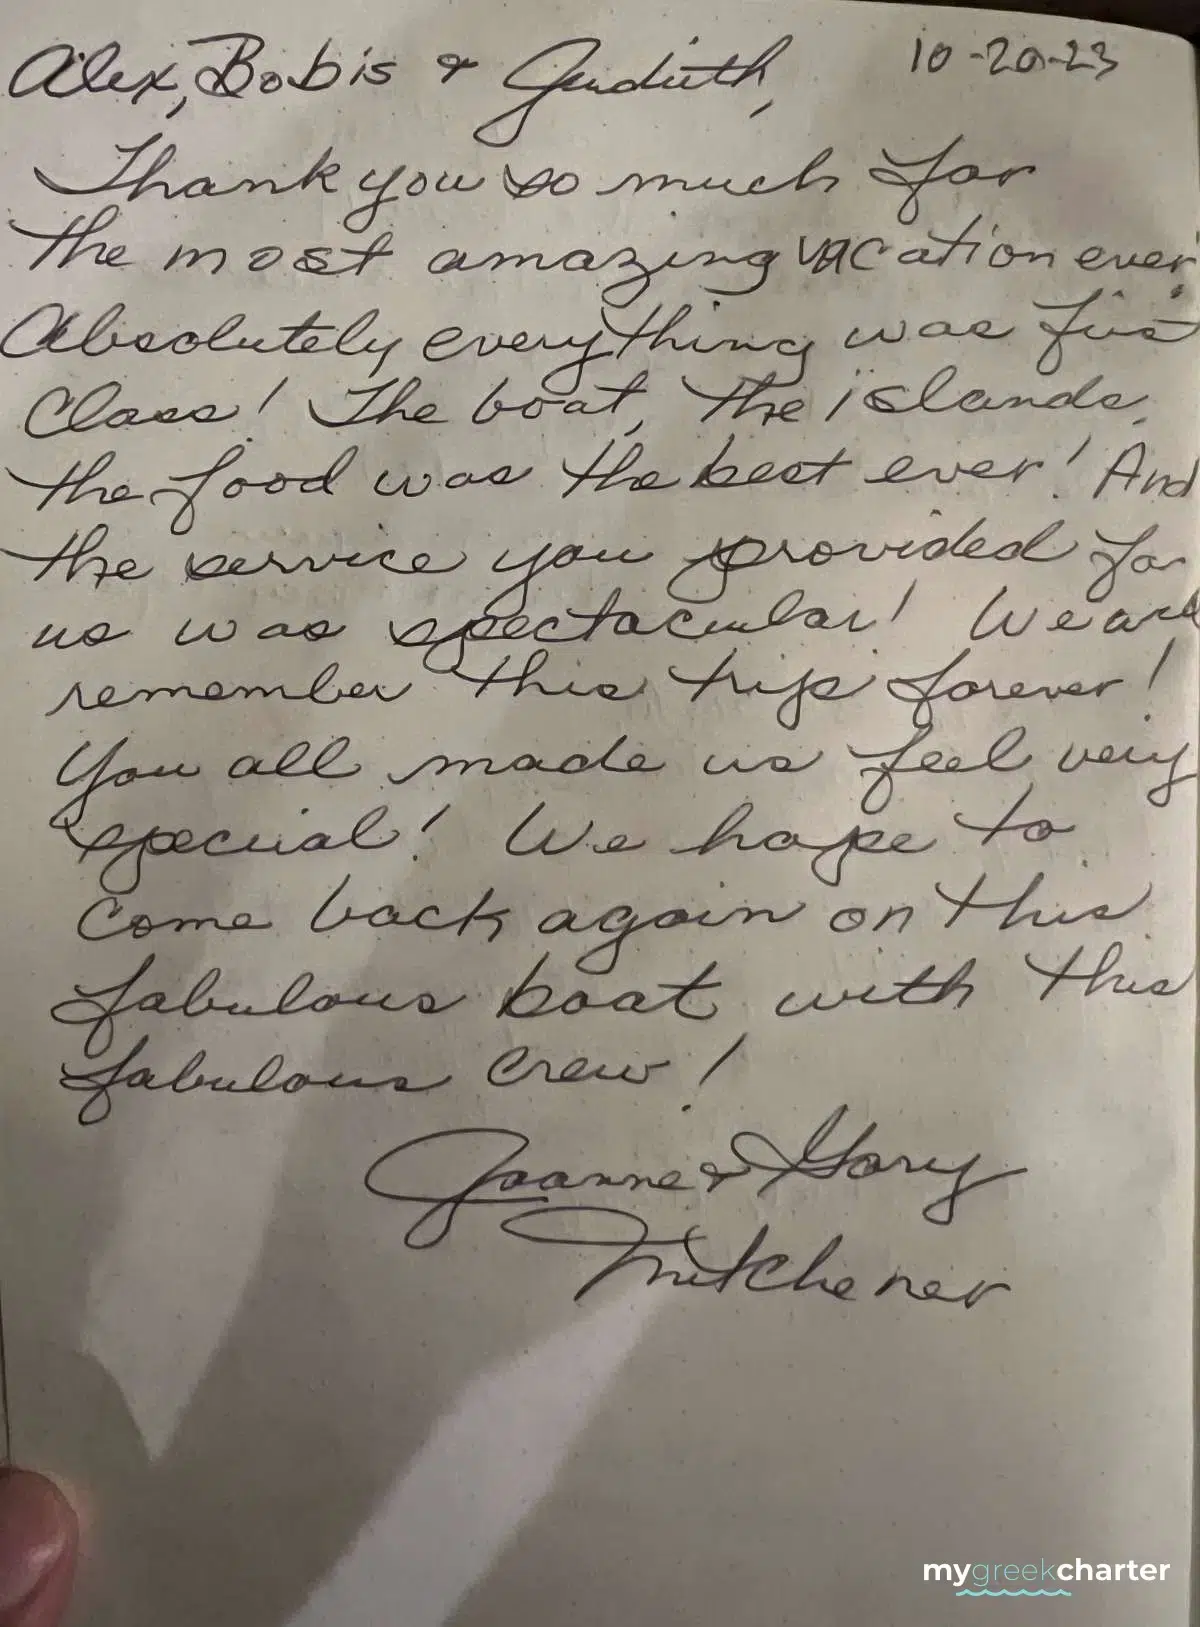 Alex, Bobis & Judith, 10-20-23
Thank you so much for
the most amazing vacation ever.
Absolutely everything was first
class! The boat, the islands,
the food was the best ever! And
the service you provided for
us was spectacular! We
remember this trip forever!
You all made us feel very
special! We hope to
come back again on this
fabulous boat with this
fabulous crew!
Joanne & Gary
Mitchener
mygreekcharter